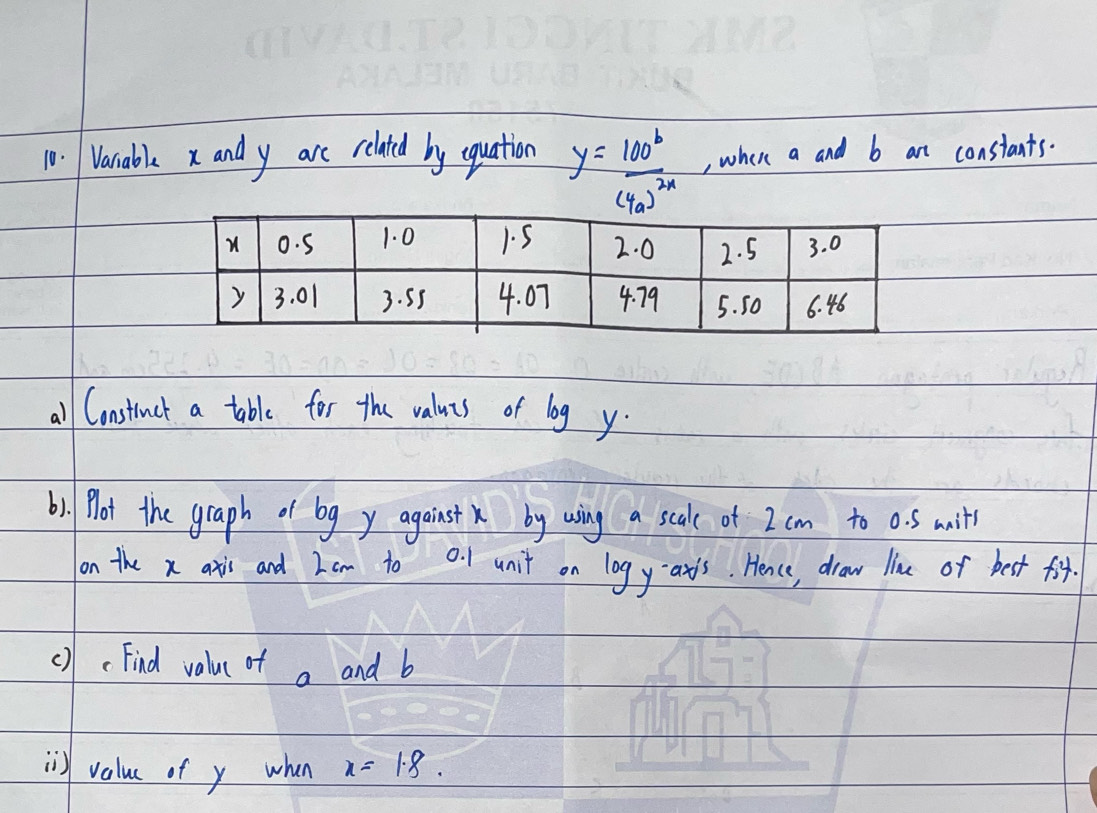 SMK TINGGI ST.DAVID
BUKIT BARU MELAKA
75150
10. Variable x and y are related by equation y = 100^b / (4a)^2x , where a and b are constants.
x 0.5 1.0 1.5 2.0 2.5 3.0
y 3.01 3.55 4.07 4.79 5.50 6.46
a) Construct a table for the values of log y.
b). Plot the graph of log y against x by using a scale of 2 cm to 0.5 units
on the x axis and 2 cm to 0.1 unit on log y-axis. Hence, draw line of best fit.
ST. DAVID'S HIGH SCHOOL
c) Find value of a and b
ii) value of y when x = 1.8.